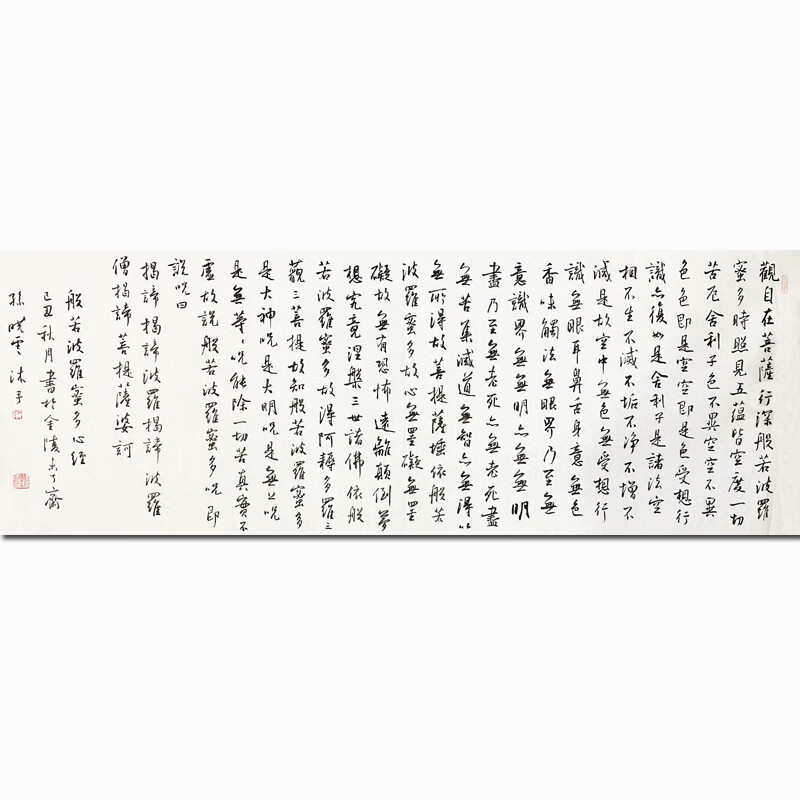 觀自在菩薩行深般若波羅
蜜多時照見五蘊皆空度一切
苦厄舍利子色不異空空不異
色色即是空空即是色受想行
識亦復如是舍利子是諸法空
相不生不滅不垢不淨不增不
減是故空中無色無受想行
識無眼耳鼻舌身意無色
香味觸法無眼界乃至無
意識界無無明亦無無明
盡乃至無老死亦無老死盡
無苦集滅道無智亦無得以
無所得故菩提薩埵依般若
波羅蜜多故心無罣礙無罣
礙故無有恐怖遠離顛倒夢
想究竟涅槃三世諸佛依般
若波羅蜜多故得阿耨多羅三
藐三菩提故知般若波羅蜜多
是大神咒是大明咒是無上咒
是無等等咒能除一切苦真實不
虛故說般若波羅蜜多咒即
說咒曰
揭諦揭諦波羅揭諦波羅
僧揭諦菩提薩婆訶
般若波羅蜜多心經
己丑秋月書於金陵了齋
孫曉雲沐手